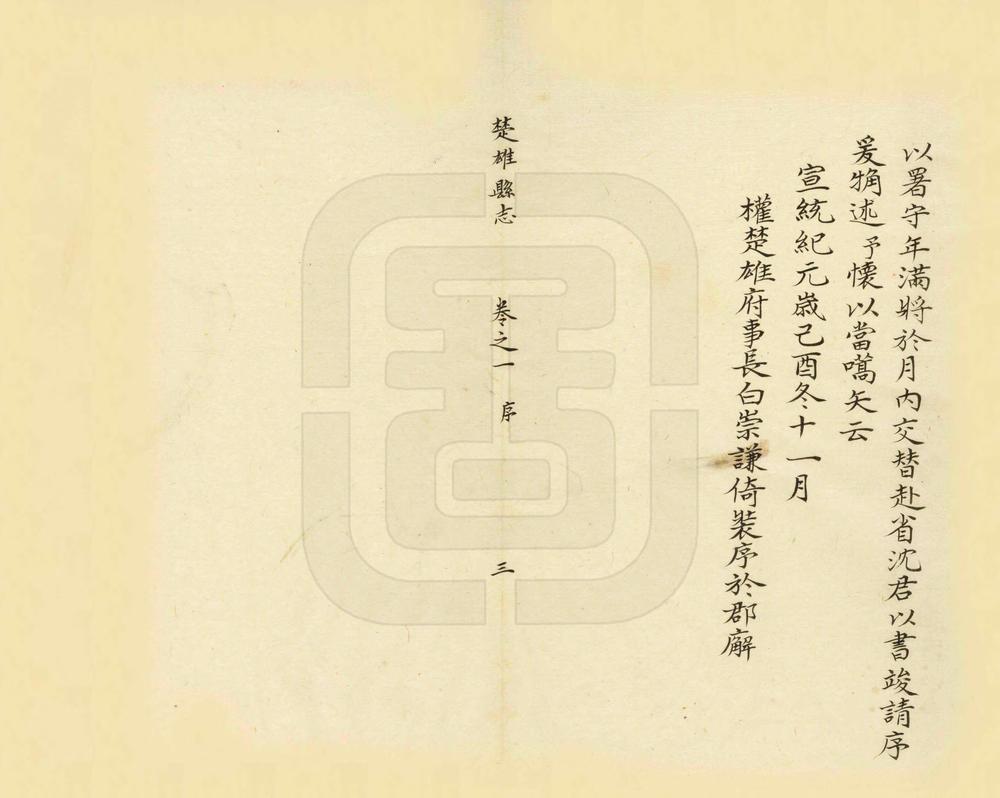 以署守年滿將於月内交替赴省沈君以書竣請序
爰觕述予懷以當嚆矢云
宣統紀元歲己酉冬十一月
權楚雄府事長白崇謙倚裝序於郡廨
楚雄縣志 卷之一 序 三